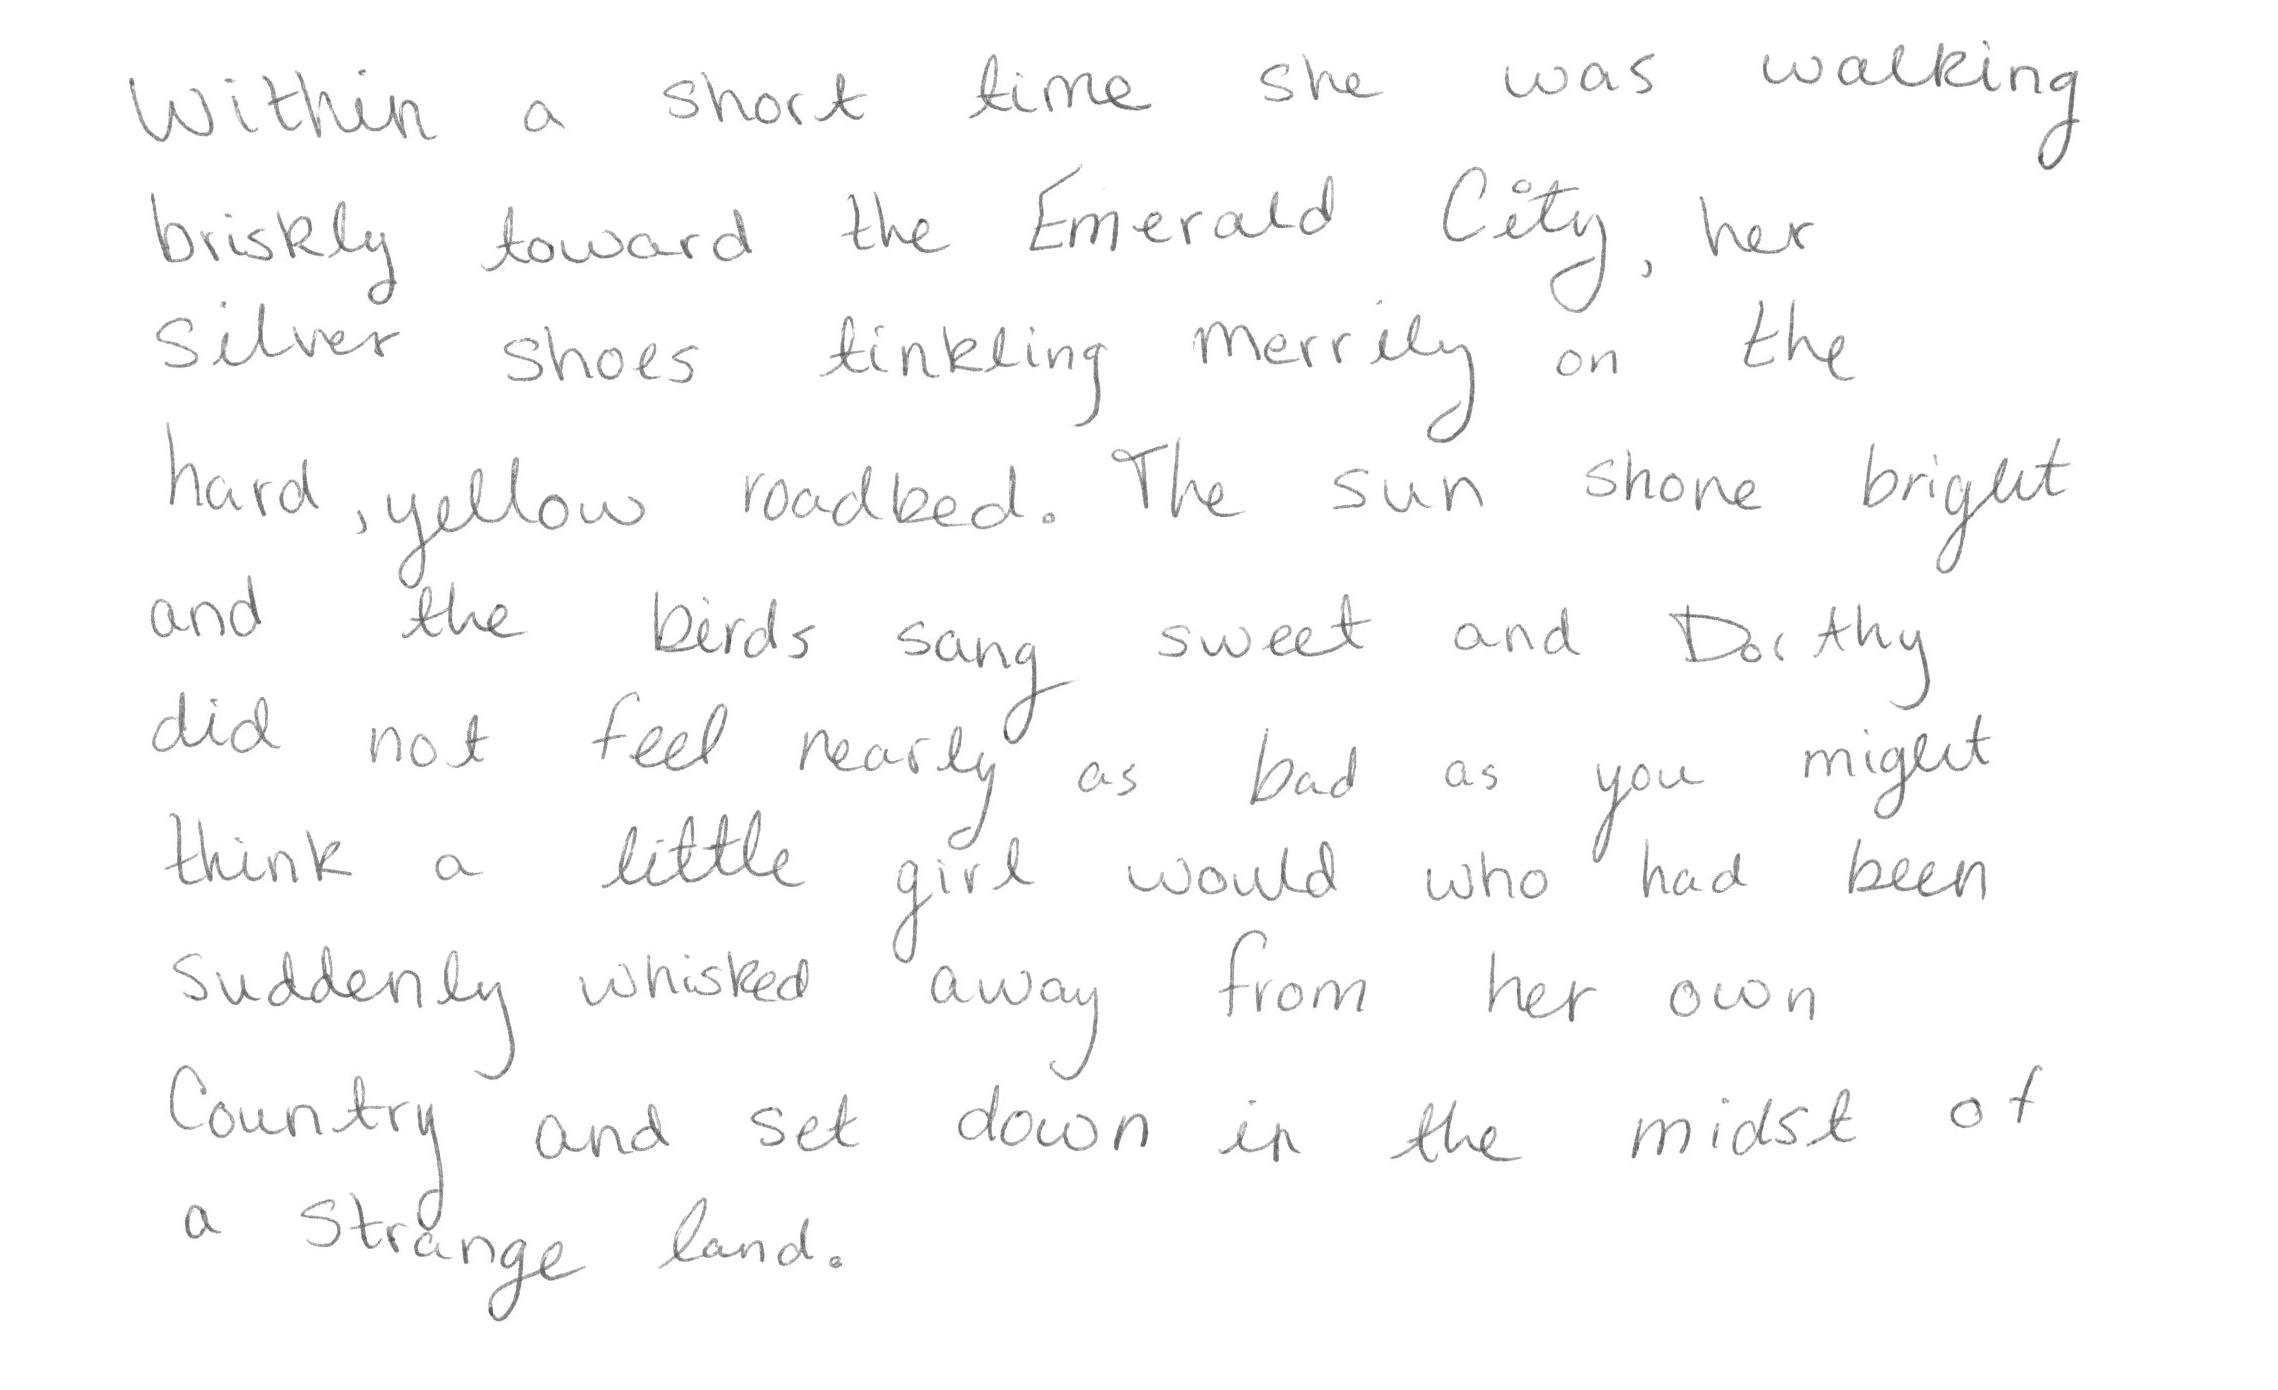 Within a short time she was walking
briskly toward the Emerald City, her
silver shoes tinkling merrily on the
hard, yellow roadbed. The sun shone bright
and the birds sang sweet and Dorthy
did not feel nearly as bad as you might
think a little girl would who had been
suddenly whisked away from her own
Country and set down in the midst of
a strange land.